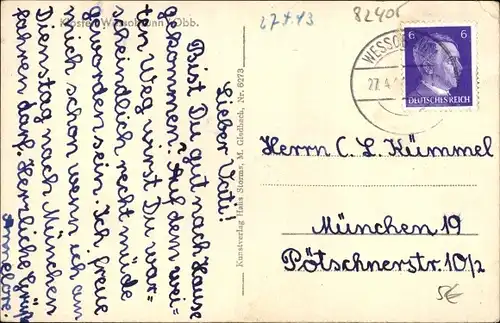 Kloster Wessobrunn, Obb.
27.4.43
82405
Lieber Vati!
Bist Du gut nach Hause
gekommen? Auf dem wei=
ten Weg wirst Du war=
scheindlich recht müde
geworden sein. Ich freue
mich schon wenn ich am
Dienstag nach München
fahren darf. Herzliche Grüße
Annelore.
Kunstverlag Hans Storms, M. Gladbach, Nr. 6273
WESSO
27.4.
6 6
DEUTSCHES REICH
Herrn C. L. Kümmel
München 19
Pötschnerstr. 10/2
5€